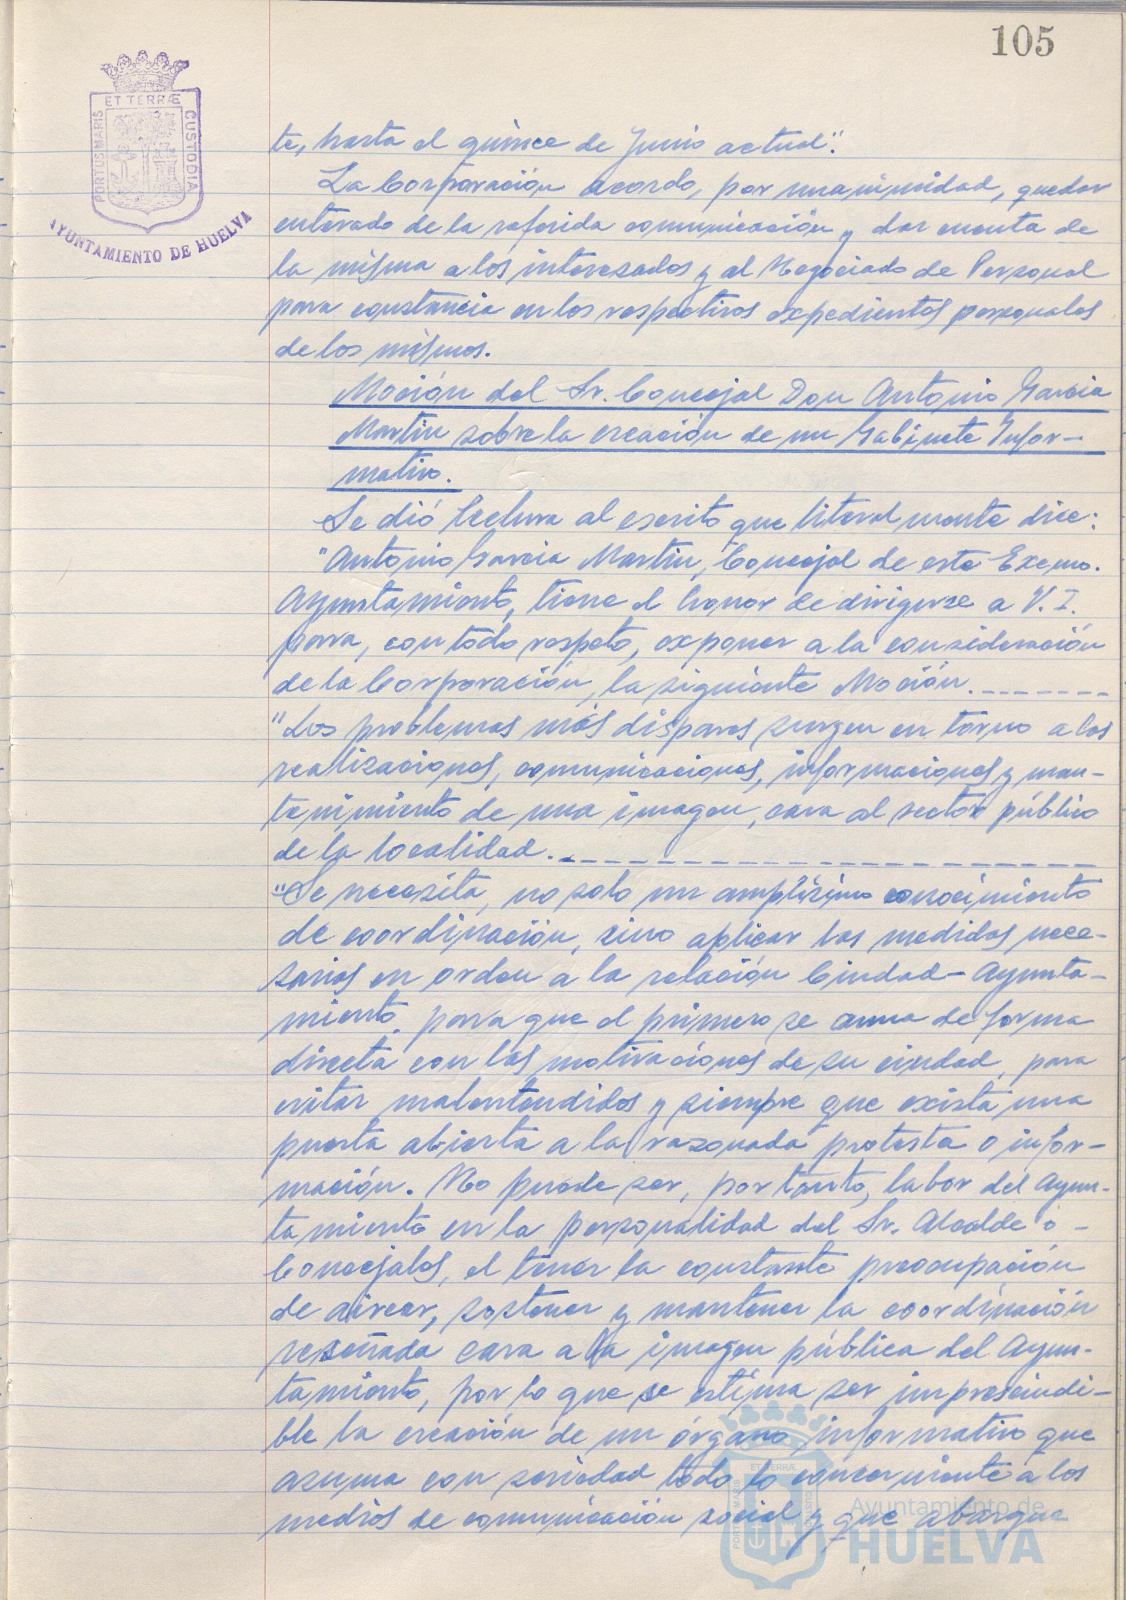 105
PORTUS MARIS
ET TERRÆ
CUSTODIA
AYUNTAMIENTO DE HUELVA
te, hasta el quince de Junio actual".
La Corporación acordó, por unanimidad, quedar
enterado de la referida comunicación y dar cuenta de
la misma a los interesados y al Negociado de Personal
para constancia en los respectivos expedientes personales
de los mismos.
Moción del Sr. Concejal Don Antonio García
Martín sobre la creación de un Gabinete Infor-
mativo.
Se dió lectura al escrito que literalmente dice:
"Antonio García Martín, Concejal de este Excmo.
Ayuntamiento, tiene el honor de dirigirse a V. I.
para, con todo respeto, exponer a la consideración
de la Corporación, la siguiente Moción.
"Los problemas más dispares surgen en torno a las
realizaciones, comunicaciones, informaciones y man-
tenimiento de una imagen, cara al sector público
de la localidad.
"Se necesita, no solo un amplísimo conocimiento
de coordinación, sino aplicar las medidas nece-
sarias en orden a la relación Ciudad-Ayunta-
miento, para que el primero se una de forma
directa con las motivaciones de su ciudad, para
evitar malentendidos y siempre que exista una
puerta abierta a la razonada protesta o infor-
mación. No puede ser, por tanto, labor del Ayun-
tamiento en la personalidad del Sr. Alcalde o
Concejales, el tener la constante preocupación
de airear, sostener y mantener la coordinación
reseñada cara a la imagen pública del Ayun-
tamiento, por lo que se estima ser imprescindi-
ble la creación de un órgano informativo que
asuma con seriedad todo lo concerniente a los
medios de comunicación social y que abarque
Ayuntamiento de
HUELVA